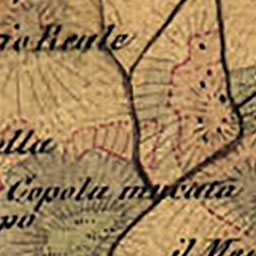 io Reale
olla
Copola mucata
po
il Ma